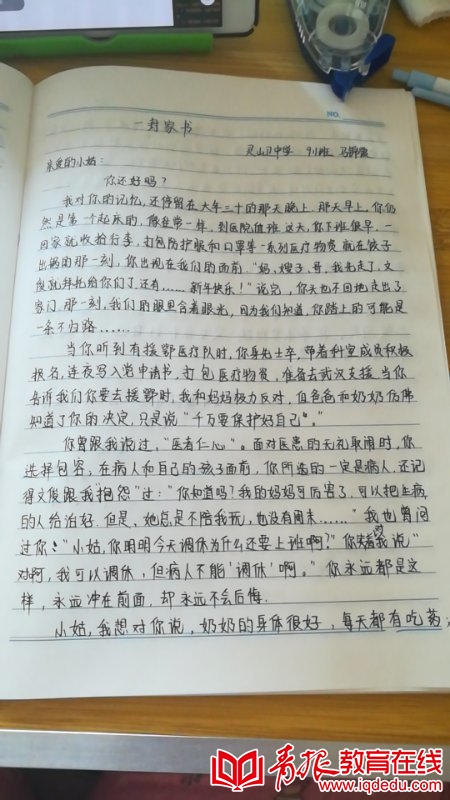 NO.
一封家书
灵山卫中学 9.1班 马
亲爱的小姑：
你还好吗？
我对你的记忆，还停留在大年三十的那天晚上。那天早上，你仍
然是第一个起床的，像往常一样，到医院值班。这天，你下班很早，一
回家就收拾行李，打包防护服和口罩等一系列医疗物资。就在饺子
出锅的那一刻，你出现在我们的面前。“妈，嫂子，哥，我先走了，文
俊就拜托给你们了，还有……新年快乐！”说完，你头也不回地走出了
家门。那一刻，我们的眼里含着眼光，因为我们知道，你踏上的可能是
一条不归路……
当你听到有援鄂医疗队时，你身先士卒，带着科室成员积极
报名，连夜写入党申请书，打包医疗物资，准备去武汉支援。当你
告诉我们你要去援鄂时，我和妈妈极力反对，但爸爸和奶奶仿佛
知道了你的决定，只是说“千万要保护好自己”。
你曾跟我说过，“医者仁心”。面对医患的无礼取闹时，你
选择包容，在病人和自己的孩子面前，你所选的一定是病人，还记
得文俊跟我“抱怨”过：“你知道吗？我的妈妈可厉害了，可以把生病
的人给治好。但是，她总是不陪我玩，也没有周末……”我也曾问
过你：“小姑，你明明今天调休为什么还要上班啊？”你笑着对我说“
对啊，我可以调休，但病人不能‘调休’啊。”你永远都是这
样，永远冲在前面，却永远不会后悔。
小姑，我想对你说，奶奶的身体很好，每天都有吃药，
青报教育在线
www.iqdedu.com